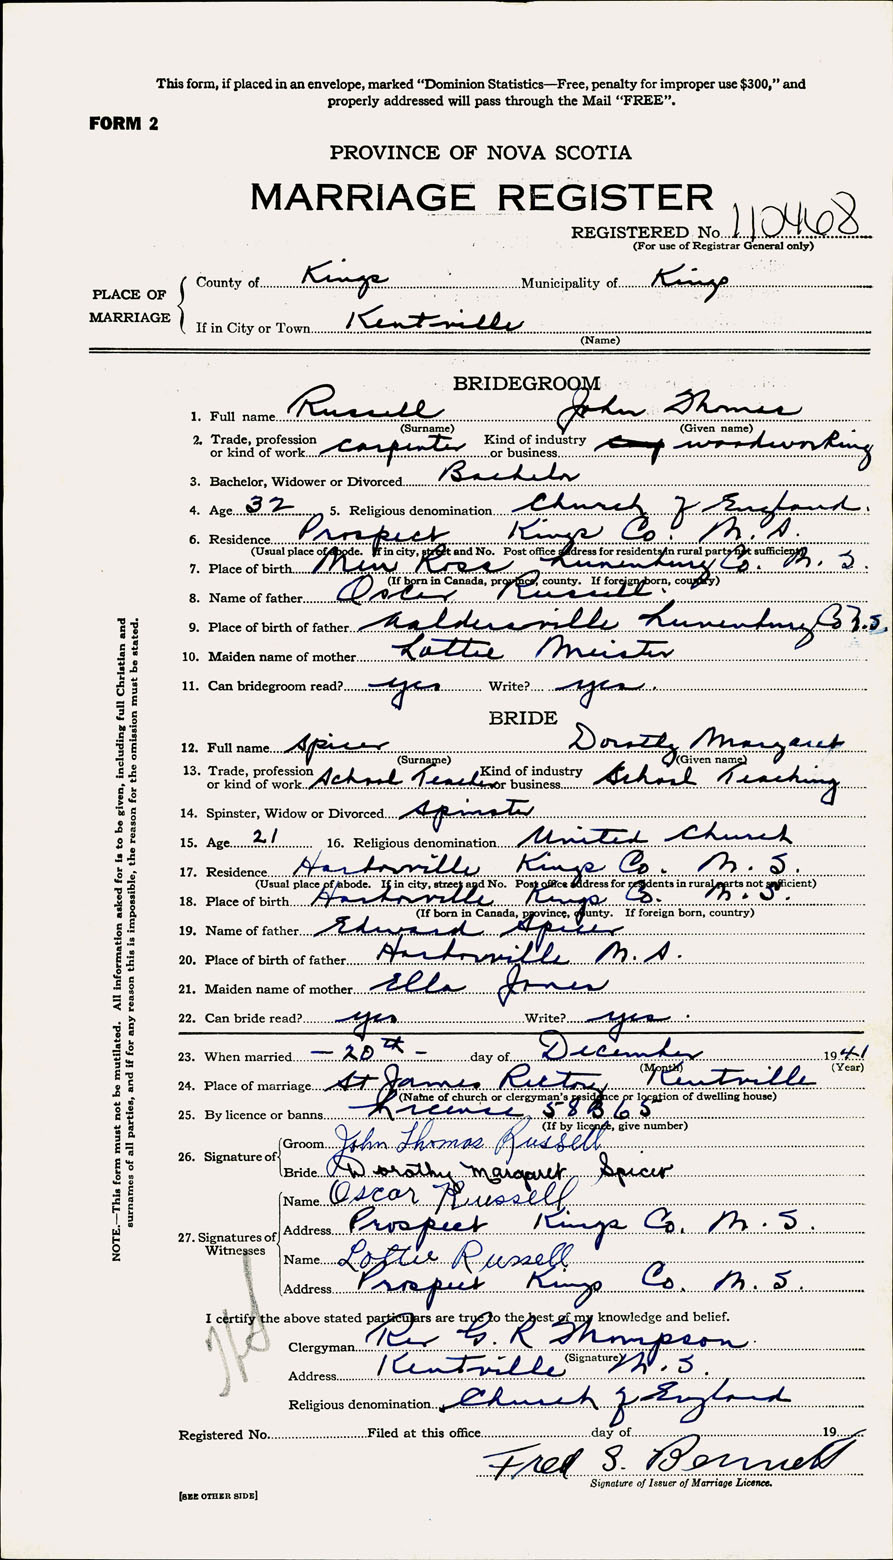 This form, if placed in an envelope, marked “Dominion Statistics—Free, penalty for improper use $300,” and
properly addressed will pass through the Mail “FREE”.
FORM 2
PROVINCE OF NOVA SCOTIA
MARRIAGE REGISTER
REGISTERED No. 110468
(For use of Registrar General only)
PLACE OF MARRIAGE
County of Kings Municipality of Kings
If in City or Town Kentville
(Name)
BRIDEGROOM
1. Full name Russell John Thomas
(Surname) (Given name)
2. Trade, profession or kind of work carpenter Kind of industry or business woodworking
3. Bachelor, Widower or Divorced Bachelor
4. Age 32 5. Religious denomination Church of England.
6. Residence Prospect Kings Co. N.S.
(Usual place of abode. If in city, street and No. Post office address for residents in rural parts not sufficient)
7. Place of birth New Ross Lunenburg Co. N. S.
(If born in Canada, province, county. If foreign born, country)
8. Name of father Oscar Russell.
9. Place of birth of father Lunenburg Co N.S.
10. Maiden name of mother Lottie Meister
11. Can bridegroom read? yes Write? yes.
BRIDE
12. Full name Spicer Dorothy Margaret
(Surname) (Given name)
13. Trade, profession or kind of work School Teacher Kind of industry or business School Teaching
14. Spinster, Widow or Divorced Spinster
15. Age 21 16. Religious denomination United Church
17. Residence Harborville Kings Co. N. S.
(Usual place of abode. If in city, street and No. Post office address for residents in rural parts not sufficient)
18. Place of birth Harborville Kings Co. N. S.
(If born in Canada, province, county. If foreign born, country)
19. Name of father Edward Spicer
20. Place of birth of father Harborville N.S.
21. Maiden name of mother Ella Jones
22. Can bride read? yes Write? yes.
23. When married - 20th - day of December 1941
(Month) (Year)
24. Place of marriage St James Rectory Kentville
(Name of church or clergyman's residence or location of dwelling house)
25. By licence or banns License 58B65
(If by licence, give number)
26. Signature of
Groom John Thomas Russell
Bride Dorothy Margaret Spicer
27. Signatures of Witnesses
Name Oscar Russell
Address Prospect Kings Co. N. S.
Name Lottie Russell
Address Prospect Kings Co. N. S.
I certify the above stated particulars are true to the best of my knowledge and belief.
Clergyman Rev G. R Thompson.
(Signature)
Address Kentville N. S.
Religious denomination Church of England
Registered No. Filed at this office day of 19
Fred S. Bennett
Signature of Issuer of Marriage Licence.
[SEE OTHER SIDE]
NOTE.—This form must not be mutilated. All information asked for is to be given, including full Christian and
surnames of all parties, and if for any reason this is impossible, the reason for the omission must be stated.